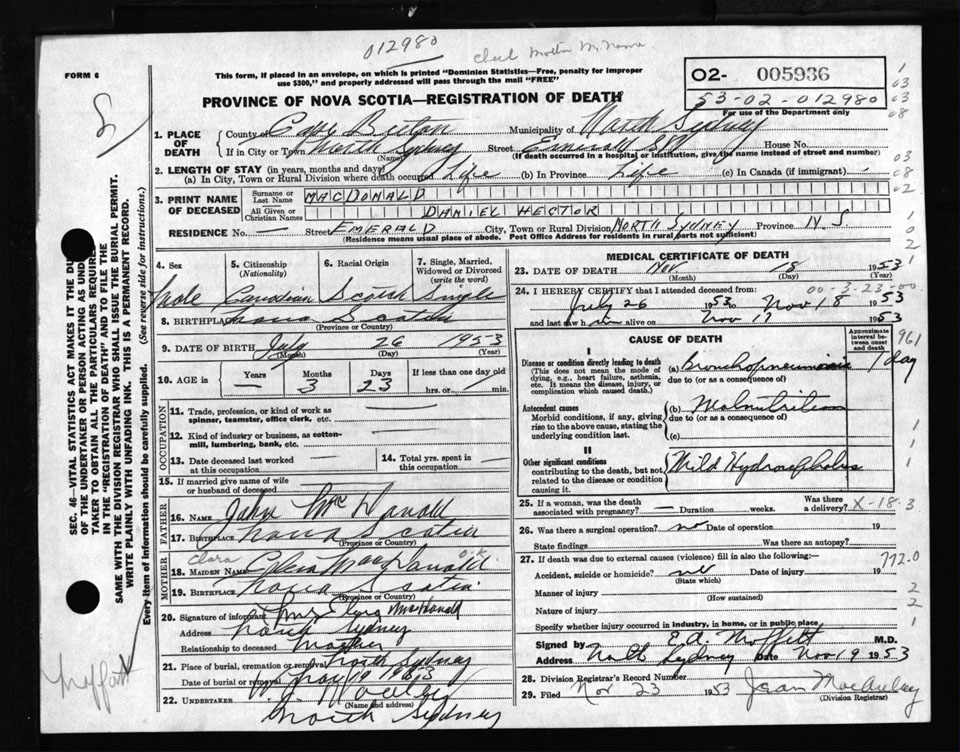 012980 Check Mother M. Name
FORM 6
This form, if placed in an envelope, on which is printed "Dominion Statistics—Free, penalty for improper
use $300," and properly addressed will pass through the mail "FREE"
PROVINCE OF NOVA SCOTIA—REGISTRATION OF DEATH
O2- 005936
53-02-012980
For use of the Department only
SEC. 46—VITAL STATISTICS ACT MAKES IT THE DU
OF THE UNDERTAKER OR PERSON ACTING AS UND
TAKER TO OBTAIN ALL THE PARTICULARS REQUIRE
IN THE "REGISTRATION OF DEATH" AND TO FILE THE
SAME WITH THE DIVISION REGISTRAR WHO SHALL ISSUE THE BURIAL PERMIT.
WRITE PLAINLY WITH UNFADING INK. THIS IS A PERMANENT RECORD.
Every item of Information should be carefully supplied. (See reverse side for instructions.)
1. PLACE OF DEATH County of Cape Breton Municipality of North Sydney
If in City or Town North Sydney (Name) Street Emerald St House No.
(If death occurred in a hospital or institution, give the name instead of street and number)
2. LENGTH OF STAY (in years, months and days)
(a) In City, Town or Rural Division where death occurred Life (b) In Province Life (c) In Canada (if immigrant)
3. PRINT NAME OF DECEASED Surname or Last Name MACDONALD
All Given or Christian Names DANIEL HECTOR
RESIDENCE No. — Street EMERALD City, Town or Rural Division NORTH SYDNEY Province N.S
(Residence means usual place of abode. Post Office Address for residents in rural parts not sufficient)
4. Sex 5. Citizenship (Nationality) 6. Racial Origin 7. Single, Married, Widowed or Divorced (write the word)
Male Canadian Scotch Single
8. BIRTHPLACE Nova Scotia
(Province or Country)
9. DATE OF BIRTH July 26 1953
(Month) (Day) (Year)
10. AGE in Years — Months 3 Days 23 If less than one day old hrs. or min.
OCCUPATION
11. Trade, profession, or kind of work as spinner, teamster, office clerk, etc. —
12. Kind of industry or business, as cotton-mill, lumbering, bank, etc. —
13. Date deceased last worked at this occupation — 14. Total yrs. spent in this occupation —
15. If married give name of wife or husband of deceased
FATHER
16. NAME John MacDonald
17. BIRTHPLACE Nova Scotia
(Province or Country)
MOTHER
Clara O.K
18. MAIDEN NAME MacDonald
19. BIRTHPLACE Nova Scotia
(Province or Country)
20. Signature of informant Mrs Clara MacDonald
Address North Sydney
Relationship to deceased Mother
21. Place of burial, cremation or removal North Sydney
Date of burial or removal Nov 19 1953
22. UNDERTAKER
(Name and address)
North Sydney
MEDICAL CERTIFICATE OF DEATH
23. DATE OF DEATH Nov. 18 1953
(Month) (Day) (Year)
00-3-23-00
24. I HEREBY CERTIFY that I attended deceased from:
July 26 1953 to Nov 18 1953
and last saw him alive on Nov 17 1953
CAUSE OF DEATH
Approximate interval between onset and death
961
I
Disease or condition directly leading to death (a) Bronchopneumonia 1 day
(This does not mean the mode of dying, e.g., heart failure, asthenia, etc. It means the disease, injury, or complication which caused death.)
due to (or as a consequence of)
Antecedent causes (b) Malnutrition
Morbid conditions, if any, giving rise to the above cause, stating the underlying condition last.
due to (or as a consequence of)
(c)
II
Other significant conditions Mild Hydrocephalus
contributing to the death, but not related to the disease or condition causing it.
25. If a woman, was the death associated with pregnancy? — Duration weeks. Was there a delivery? X-18.3
26. Was there a surgical operation? no Date of operation 19
State findings Was there an autopsy?
27. If death was due to external causes (violence) fill in also the following:— 772.0
Accident, suicide or homicide? nil Date of injury 19
(State which)
Manner of injury
(How sustained)
Nature of injury
Specify whether injury occurred in industry, in home, or in public place
Signed by E.A. Moffatt M.D.
Address North Sydney Date Nov 19 1953
28. Division Registrar's Record Number
29. Filed Nov 23 1953 Jean MacAulay
(Division Registrar)
Moffatt